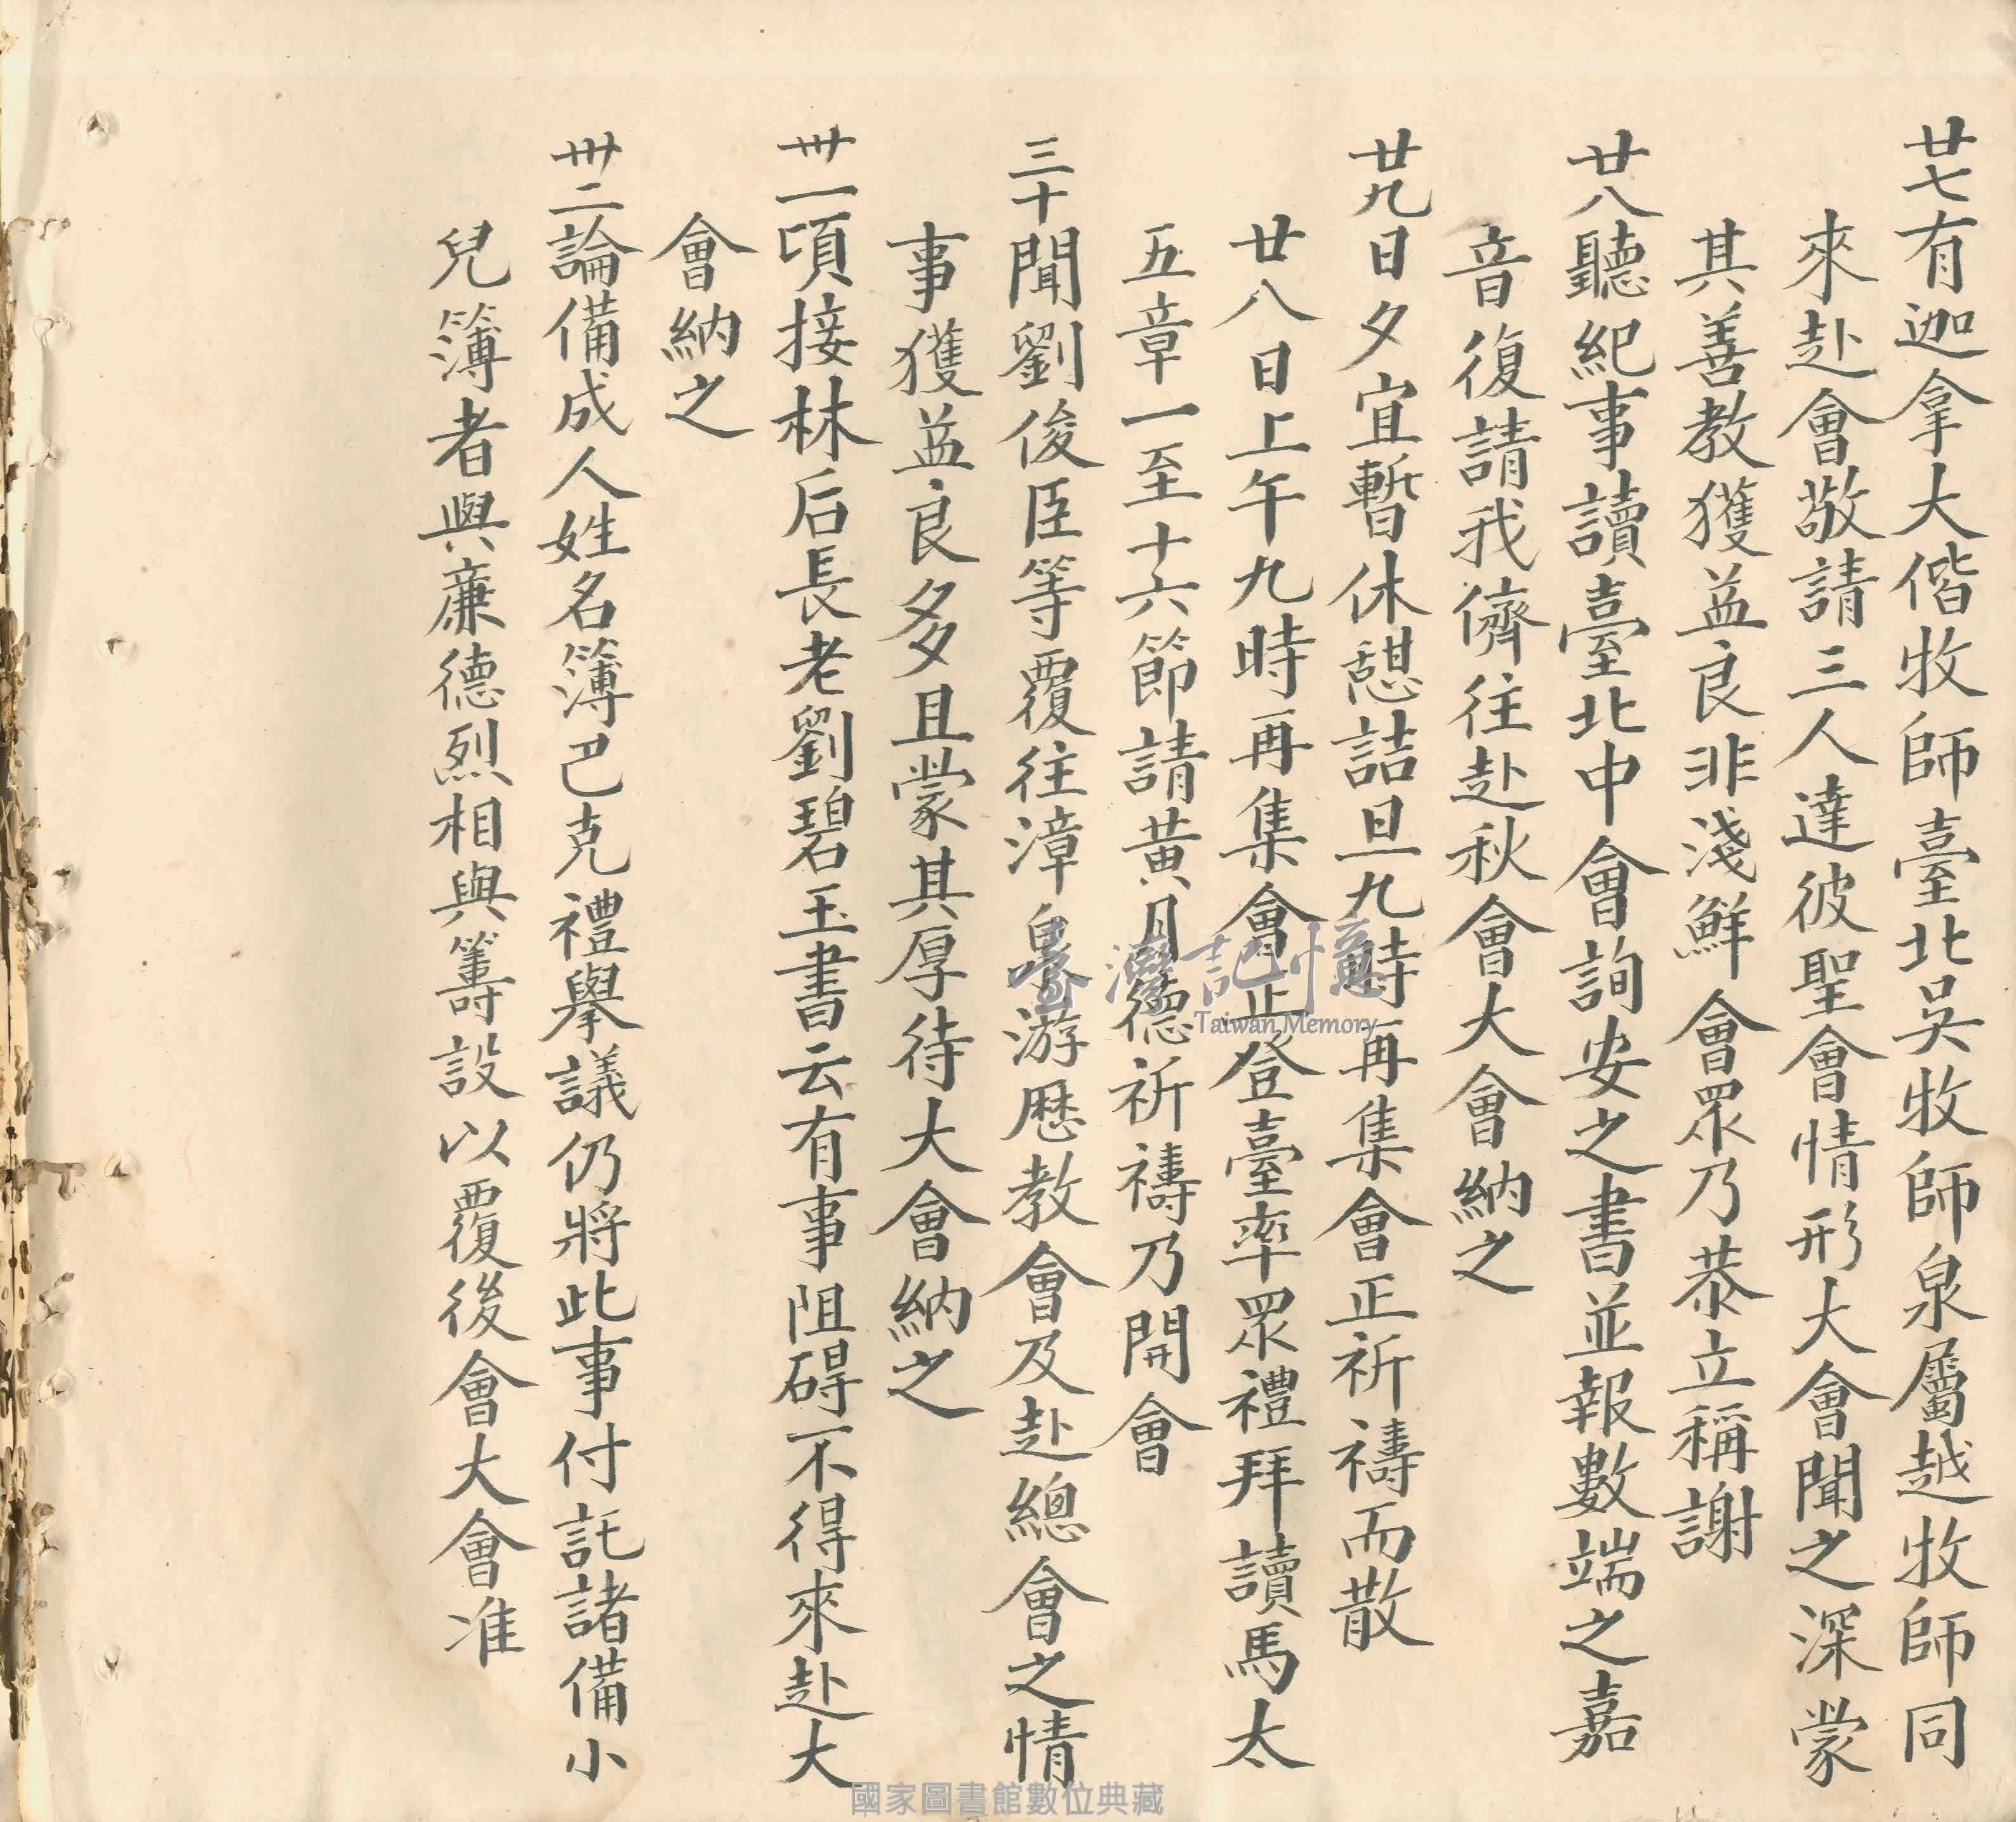 廿七有迦拿大偕牧師臺北吳牧師泉屬越牧師同
來赴會敬請三人達彼聖會情形大會聞之深蒙
其善教獲益良非淺鮮會眾乃恭立稱謝
廿八聽紀事讀臺北中會詢安之書並報數端之嘉
音復請我儕往赴秋會大會納之
廿九日夕宜暫休憩詰旦九時再集會正祈禱而散
廿八日上午九時再集會正登臺率眾禮拜讀馬太
五章一至十六節請黃月德祈禱乃開會
三十聞劉俊臣等覆往漳泉游歷教會及赴總會之情
事獲益良多且蒙其厚待大會納之
卅一頃接林后長老劉碧玉書云有事阻碍不得來赴大
會納之
卅二論備成人姓名簿巴克禮舉議仍將此事付託諸備小
兒簿者與廉德烈相與籌設以覆後會大會准
臺灣記憶
Taiwan Memory
國家圖書館數位典藏